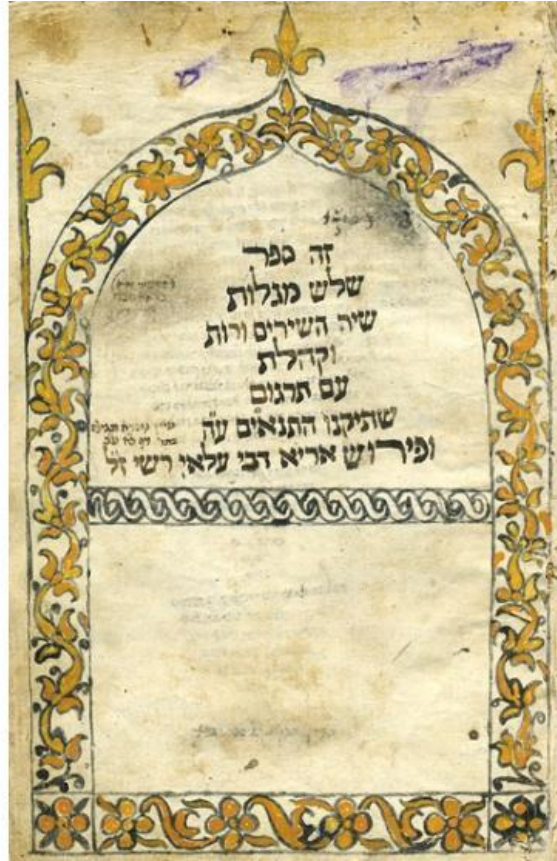 זה ספר
שלש מגלות
שיה השירים ורות
וקהלת
עם תרגום
שתיקנו התנאים ע״ה
ופירוש אריא דבי עלאי רשי ז״ל